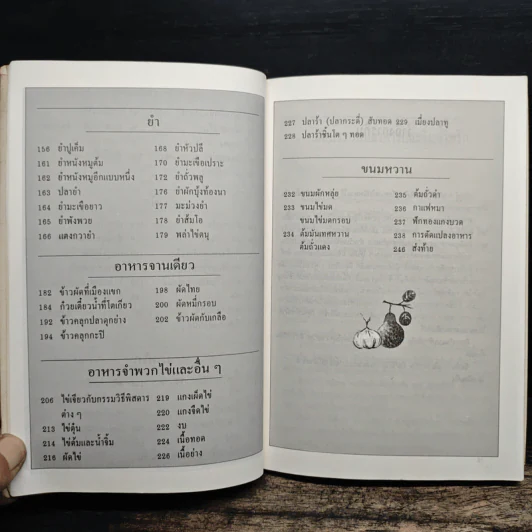 ยำ
156 ยำปูเค็ม
161 ยำหนังหมูต้ม
162 ยำหนังหมูอีกแบบหนึ่ง
163 ปลายำ
164 ยำมะเขือยาว
165 ยำพังพวย
166 แตงกวายำ
168 ยำหัวปลี
170 ยำมะเขือเปราะ
172 ยำถั่วพลู
176 ยำผักบุ้งท้องนา
177 มะม่วงยำ
178 ยำส้มโอ
179 พล่าไข่คนุ
อาหารจานเดียว
182 ข้าวผัดที่เมืองแขก
184 ก๋วยเตี๋ยวน้ำที่โตเกียว
192 ข้าวคลุกปลาดุกย่าง
194 ข้าวคลุกกะปิ
198 ผัดไทย
200 ผัดหมี่กรอบ
202 ข้าวผัดกับเกลือ
อาหารจำพวกไข่และอื่น ๆ
206 ไข่เจียวกับกรรมวิธีพิสดาร
ต่าง ๆ
213 ไข่ตุ๋น
214 ไข่ต้มและน้ำจิ้ม
216 ผัดไข่
219 แกงเผ็ดไข่
220 แกงจืดไข่
222 งบ
224 เนื้อทอด
226 เนื้อย่าง
227 ปลาร้า (ปลากระดี่) สับทอด
228 ปลาร้าชิ้นโต ๆ ทอด
229 เมี่ยงปลาทู
ขนมหวาน
232 ขนมผักหลุ่อ
233 ขนมไข่มด
ขนมไข่มดกรอบ
234 ต้มมันเทศหวาน
ต้มถั่วแดง
235 ต้มถั่วดำ
236 กาแฟหมา
237 ฟักทองแกงบวด
238 การดัดแปลงอาหาร
246 ส่งท้าย